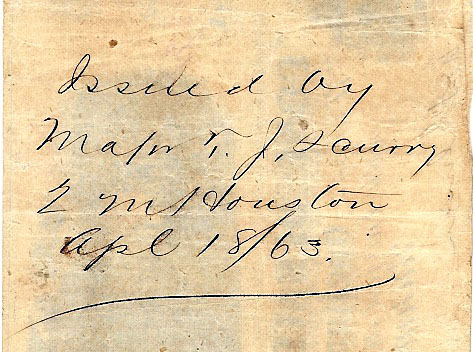 Issued by
Major T. J. Scurry
Q M Houston
Apl 18/63.